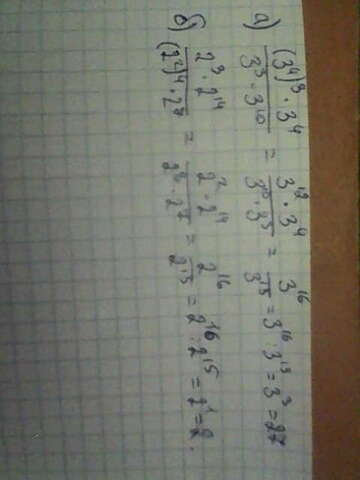 а) (3⁴)³ · 3⁴ / 3³ · 3¹⁰ = 3¹² · 3⁴ / 3¹⁰ · 3³ = 3¹⁶ / 3¹³ = 3¹⁶ : 3¹³ = 3³ = 27
б) 2³ · 2¹⁴ / (2²)⁴ · 2⁷ = 2² · 2¹⁴ / 2⁸ · 2⁷ = 2¹⁶ / 2¹⁵ = 2¹⁶ : 2¹⁵ = 2¹ = 2.